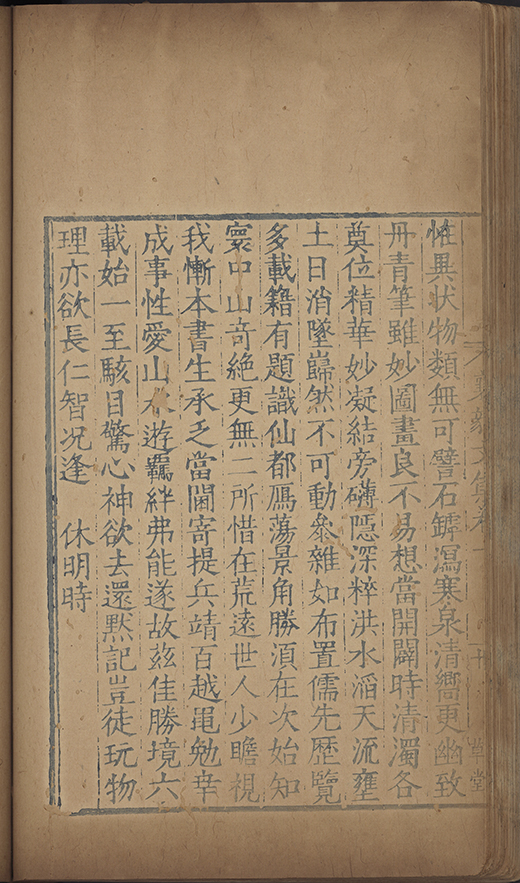 襄毅文集卷 十 草堂
恠異状物類無可譬石罅瀉寒泉清嚮更幽致
丹青筆雖妙圖畫良不易想當開闢時清濁各
奠位精華妙凝結旁礴隱深粹洪水滔天流壅
土日消墜巋然不可動叅雜如布置儒先歴覽
多載籍有題識仙都鴈蕩景角勝湏在次始知
寰中山竒絶更無二所惜在荒遠世人少瞻視
我慚本書生承乏當閫寄提兵靖百越黽勉幸
成事性愛山水遊覊絆弗能遂故兹佳勝境六
載始一至駭目驚心神欲去還黙記豈徒玩物
理亦欲長仁智况逢 休明時